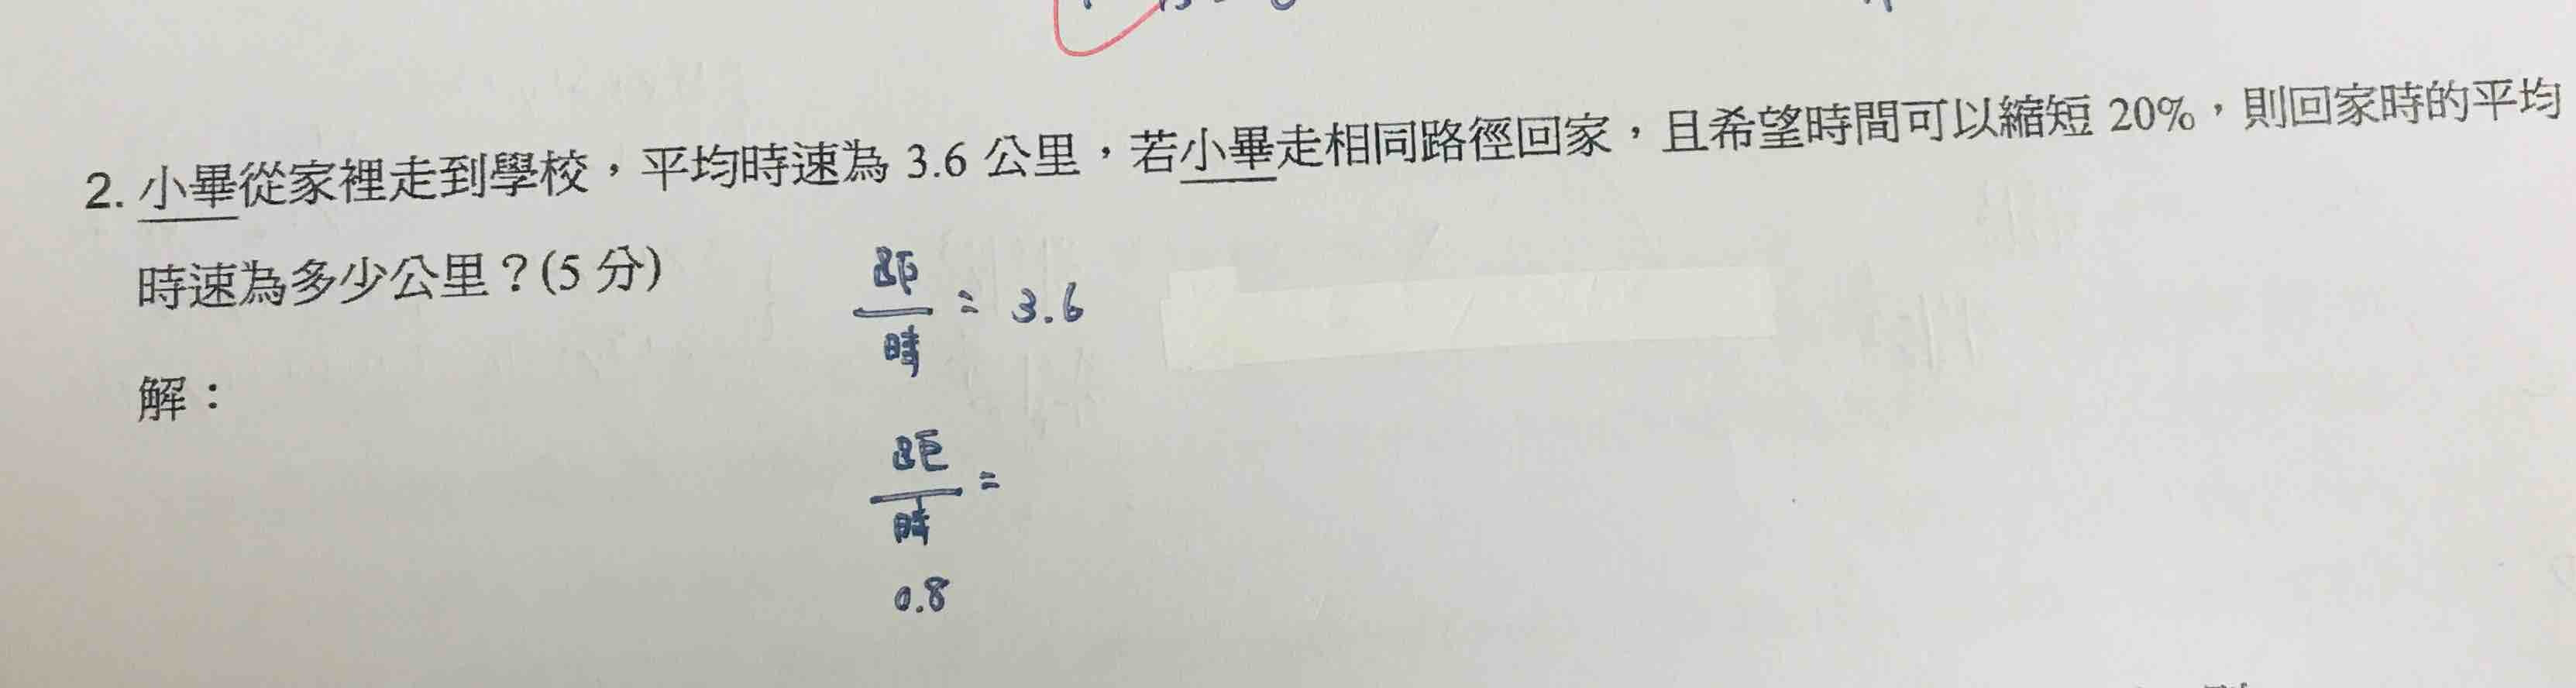 2. 小畢從家裡走到學校，平均時速為 3.6 公里，若小畢走相同路徑回家，且希望時間可以縮短 20%，則回家時的平均
時速為多少公里？(5 分)
距
時
= 3.6
解：
距
時
=
0.8